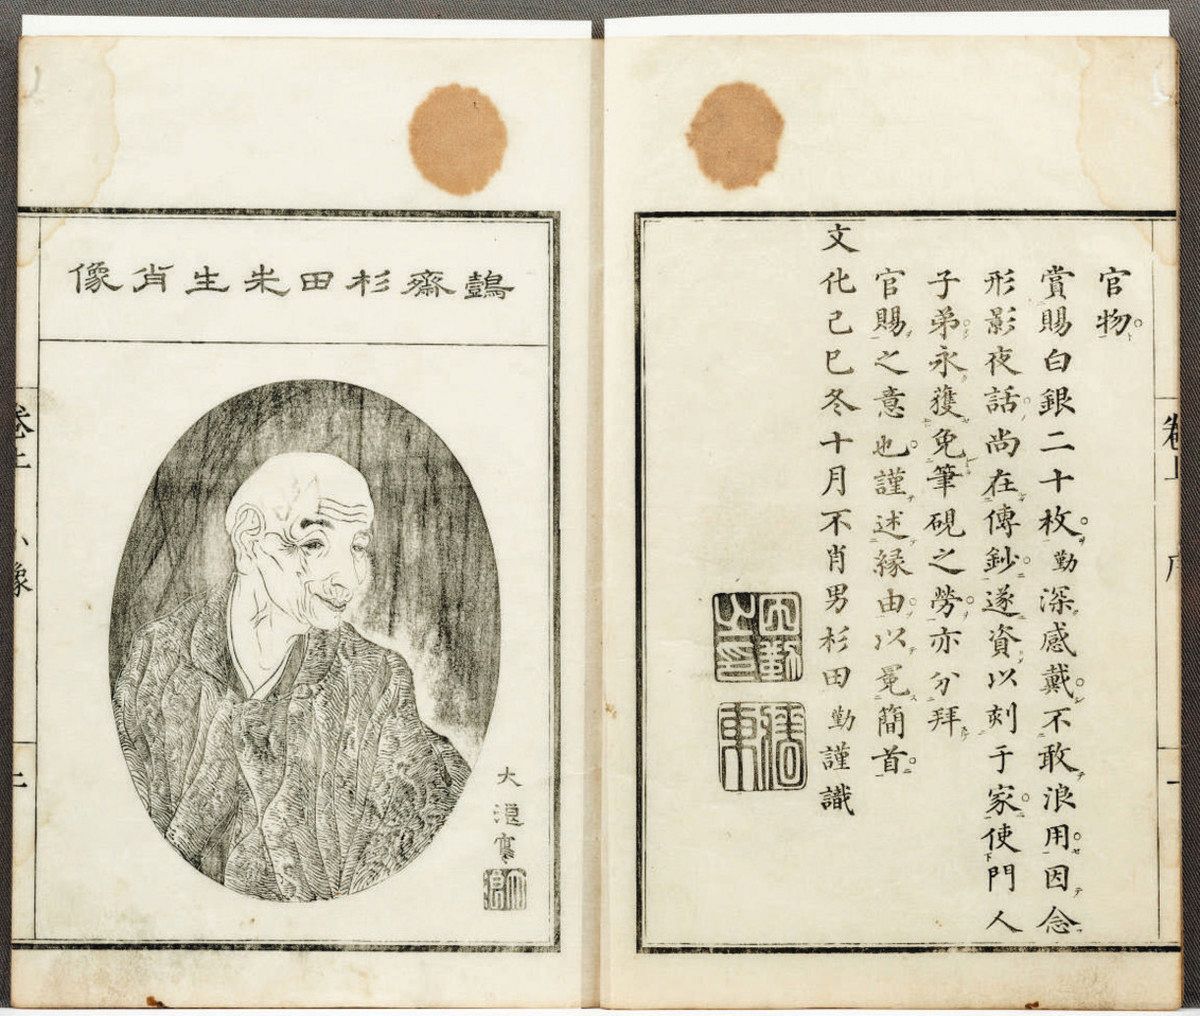 官物
賞賜白銀二十枚勤深感戴不敢浪用因念
形影夜話尚在傳鈔遂資以刻于家使門人
子弟永獲免筆硯之勞亦分拜
官賜之意也謹述縁由以冕簡首
文化己巳冬十月不肖男杉田勤謹識
鷧齋杉田先生肖像
大浪寫
卷上 小像